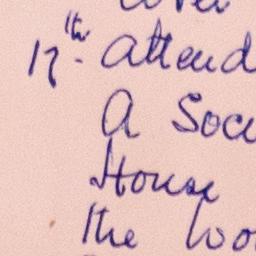 17th. Attend
A Soci
House
the